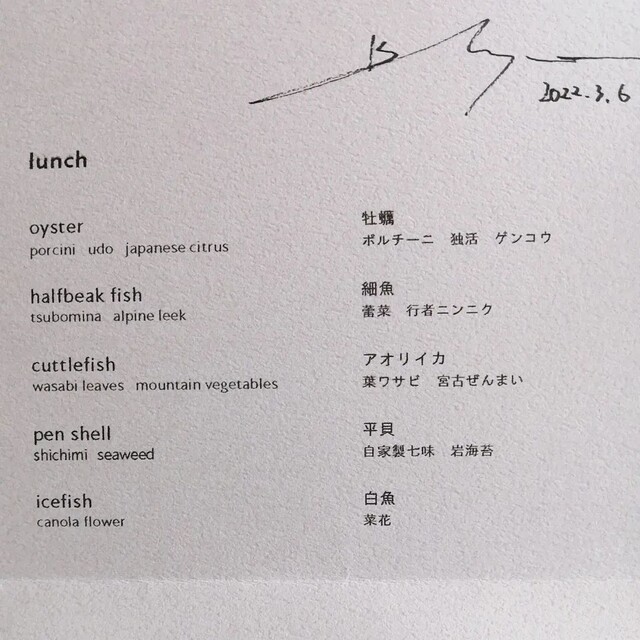 2022.3.6
lunch
oyster
porcini udo japanese citrus
牡蠣
ポルチーニ 独活 ゲンコウ
halfbeak fish
tsubomina alpine leek
細魚
蕾菜 行者ニンニク
cuttlefish
wasabi leaves mountain vegetables
アオリイカ
葉ワサビ 宮古ぜんまい
pen shell
shichimi seaweed
平貝
自家製七味 岩海苔
icefish
canola flower
白魚
菜花